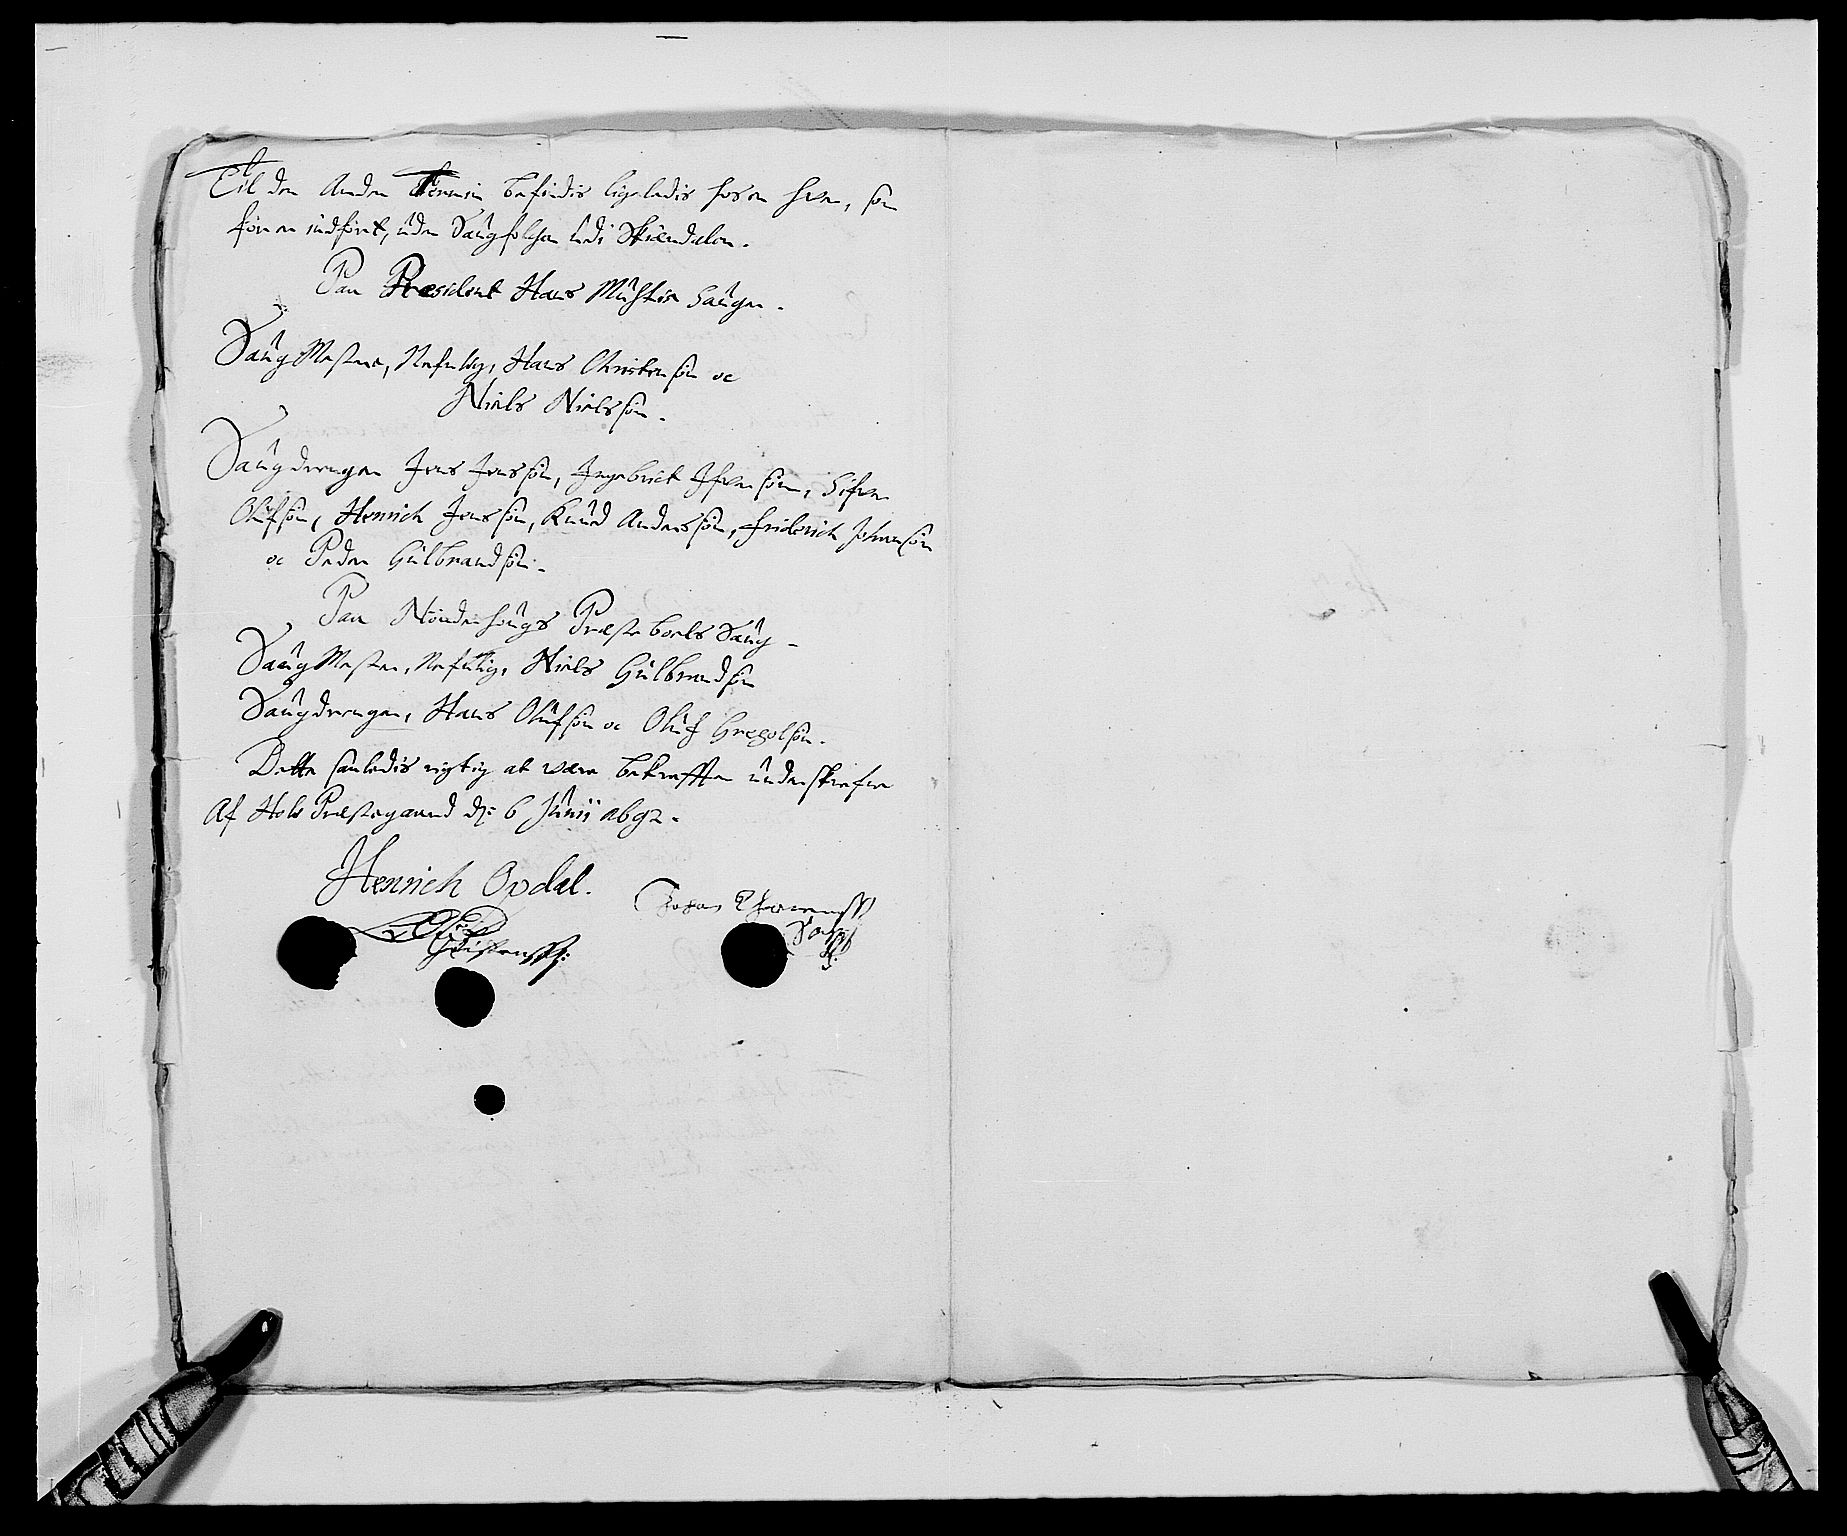 Til den Anden Termin befindis ligeledis som
før er indført, uden Saugfolchen udi Skiendalen.
Paa Præsident Hans Mustis Sauger.
SaugMestere, Nefnlig, Hans Christensøn oc
Niels Nielssøn.
Saugdrenger Jens Jenssøn, Ingebrict Ifversøn, Sifver
Olufsøn, Henrich Jenssøn, Knud Anderssøn, Friderich Johansøn
oc Peder Gulbrandsøn.
Paa Nonderhougs Præsteboels Saug.
SaugMester, Nefnlig, Niels Gulbrandsøn
Saugdrenger, Hans Olufsøn oc Oluf Gregolsøn.
Dette saaledis rigtig at være bekreffter underskrefne
Af Hole Præstegaard d: 6 Junii 1692.
Henrich Opdal.